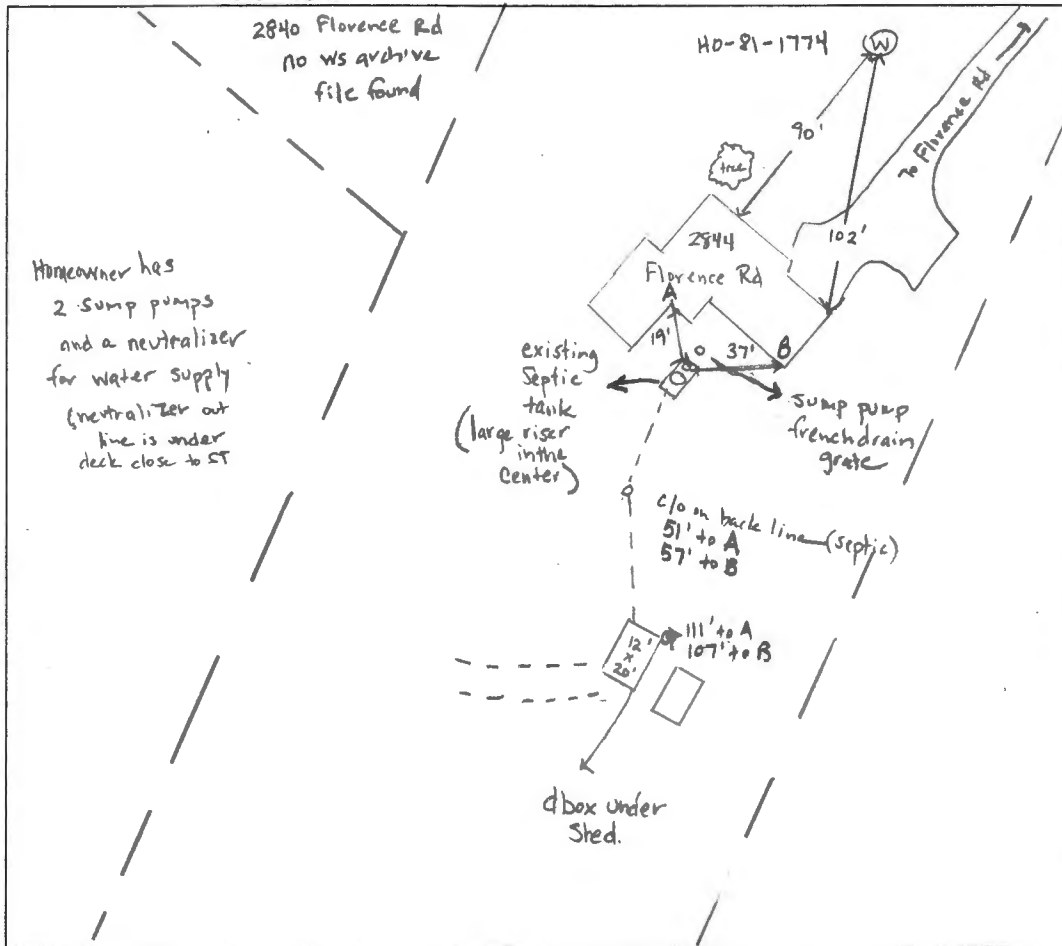 2840 Florence Rd
no ws archive
file found
HO-81-1774
W
90'
To Florence Rd
tree
102'
2844
Florence Rd
Homeowner has
2 sump pumps
and a neutralizer
for water supply
(neutralizer out
line is under
deck close to ST
A
19'
37'
B
existing
Septic
tank
(large riser
in the
center)
sump pump
french drain
grate
c/o on back line (septic)
51' to A
57' to B
12'
x
20'
111' to A
107' to B
dbox under
Shed.